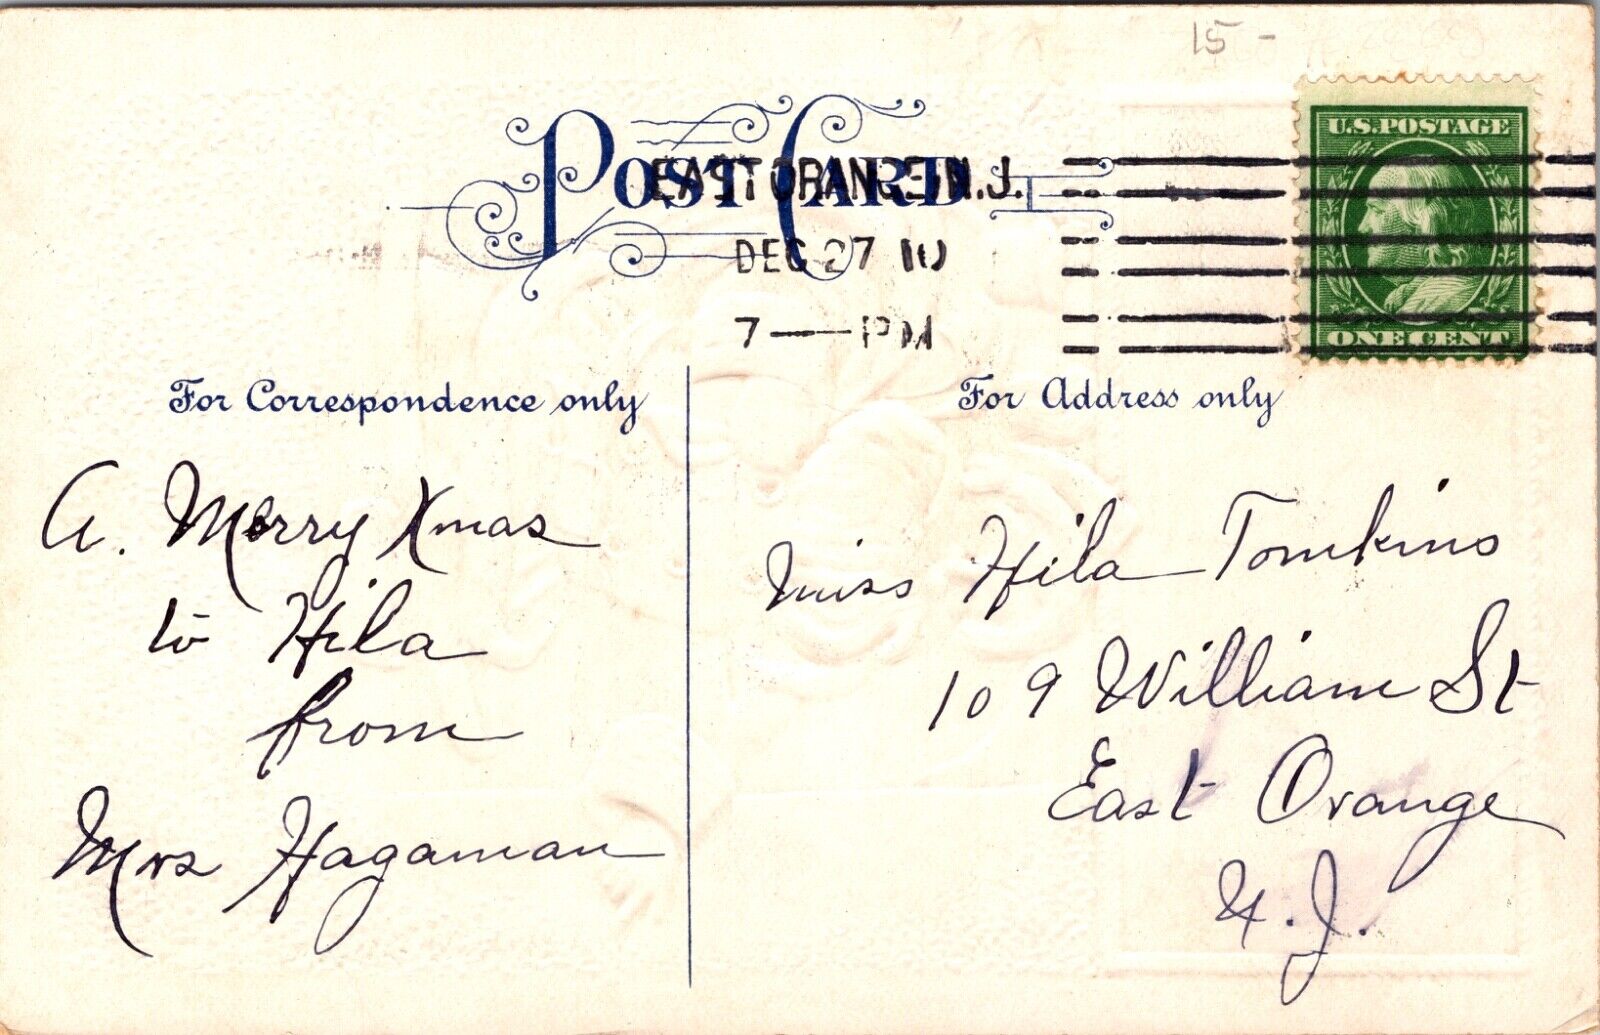 15 -
POST CARD
EAST ORANGE N.J.
DEC 27 10
7 — PM
U.S. POSTAGE
ONE CENT
For Correspondence only
For Address only
A. Merry Xmas
to Hila
from
Mrs Hagaman
Miss Hila Tomkins
109 William St
East Orange
N.J.